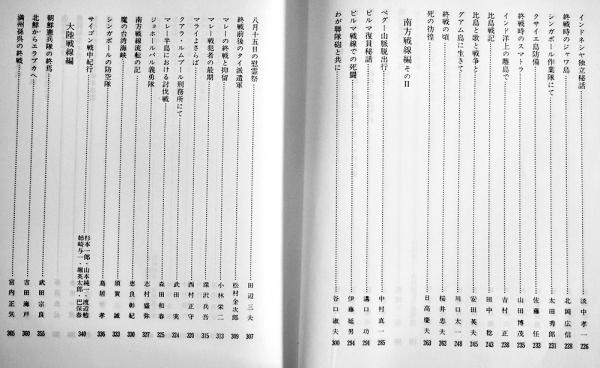 インドネシヤ独立秘話 淡中孝一 226
終戦時のジャワ島 北岡広信 228
シンガポール作業隊にて 太田秀郎 231
クサイエ島防備 佐藤任 233
終戦時のスマトラ 山田博茂 235
インド洋上の離島で 吉村正 238
比島戦記 田中稔 243
比島と歌と戦争と 安田英夫 245
グアム島に生きて 川口太一 248
終戦の頃 桜井忠夫 262
死の彷徨 日高慶夫 263
南方戦線編 その II
ペグー山脈脱出行 中村真一 285
ビルマ復員秘話 溝口功 291
ビルマ戦線での死闘 伊藤延男 294
わが聯隊砲と共に 谷口淑夫 300
八月十五日の慰霊祭 田辺三夫 307
終戦前後のタイ派遣軍 松村金次郎 309
マレーの終戦と抑留 小林栄二 313
マレー戦犯者の最期 深沢兵吾 315
マライよさらば 西村正守 320
クアラ・ルムプール刑務所にて 武田実 324
マレー半島における討伐戦 森田和春 325
ジョホールバル義勇隊 志村盛弥 327
南方戦線流転の記 恵良彰紀 330
魔の台湾海峡 須賀誠 333
シンガポールの防空隊 鳥居孝 336
サイゴン戦中紀行 杉本一郎・山本純一・渡辺稔
姉崎与一・堀英太郎・巴保春 340
大陸戦線編
朝鮮憲兵隊の終焉 武田宗良 355
北鮮からエラブカへ 吉田海戸 360
満州孫呉の終戦 宮内正気 365